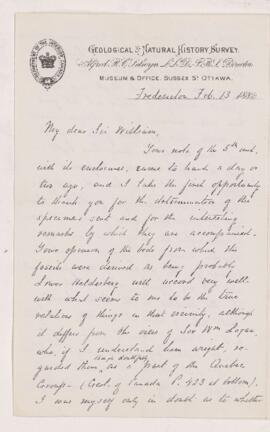 GEOLOGICAL & NATURAL HISTORY SURVEY.
Alfred R. C. Selwyn LL.D., F.R.S. Director
MUSEUM & OFFICE, SUSSEX ST OTTAWA.
Fredericton Feb. 13
My dear Sir William,
Your note of the 5th inst.
with its enclosures, came to hand a day or
two ago, and I take the first opportunity
to thank you for the determination of the
specimens sent and for the interesting
remarks by which they are accompanied.
Your opinion of the beds from which the
fossils were derived as being probably
Lower Helderberg will accord very well
with what seems to me to be the true
relations of things in that vicinity, although
it differs from the views of Sir Wm Logan,
who, if I understand him aright, re-
garded them, as a part of the Quebec
Group (Geol. of Canada P. 423 at bottom).
I was myself only in doubt as to whether